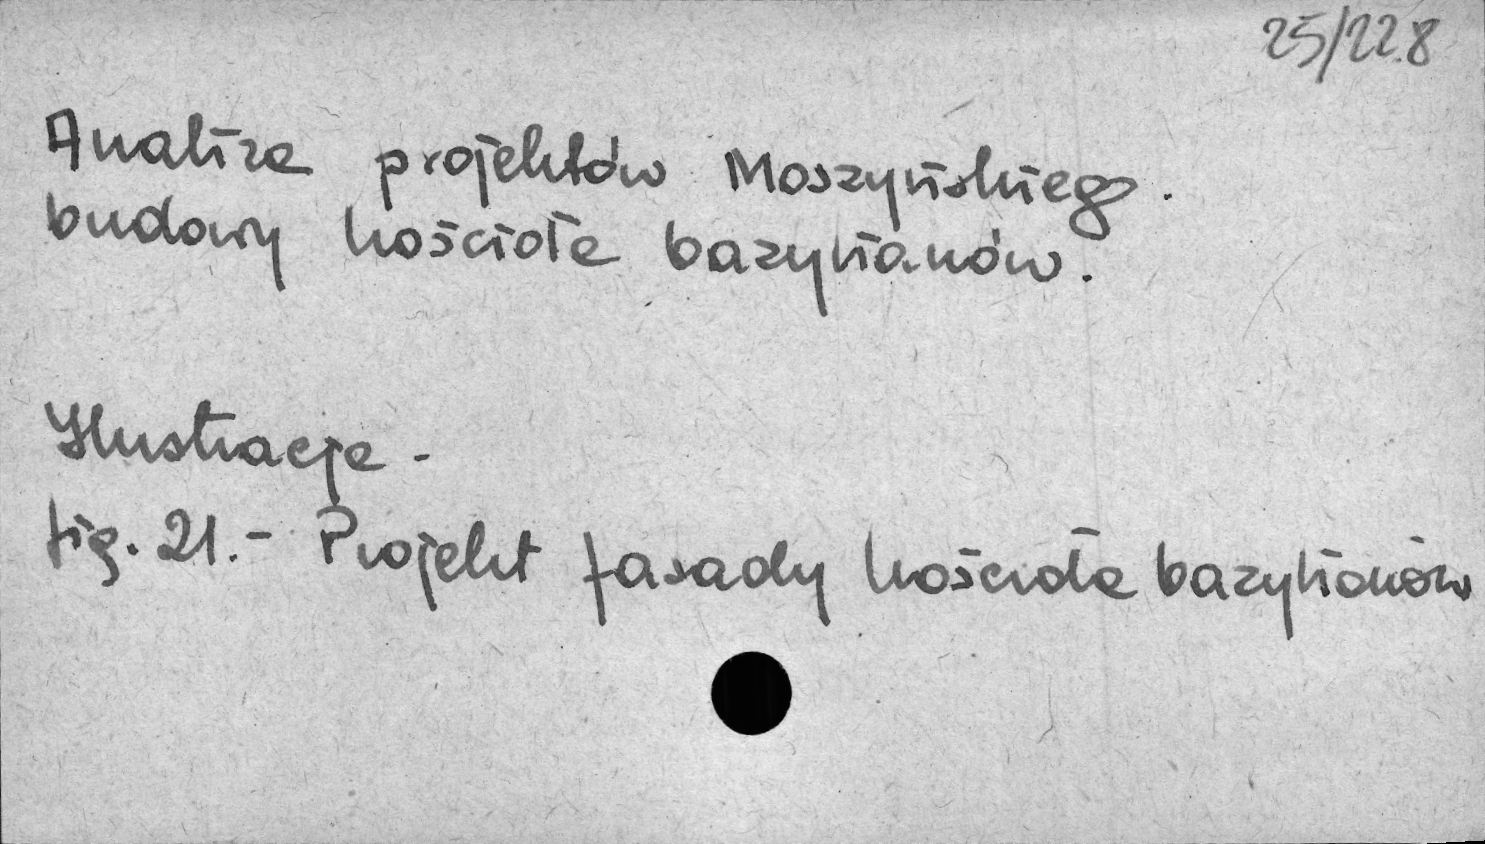 25/22.8
Analiza projektów Moszyńskiego.
budowy kościoła bazylianów.
Ilustracje -
fig. 21.- Projekt fasady kościoła bazylianów